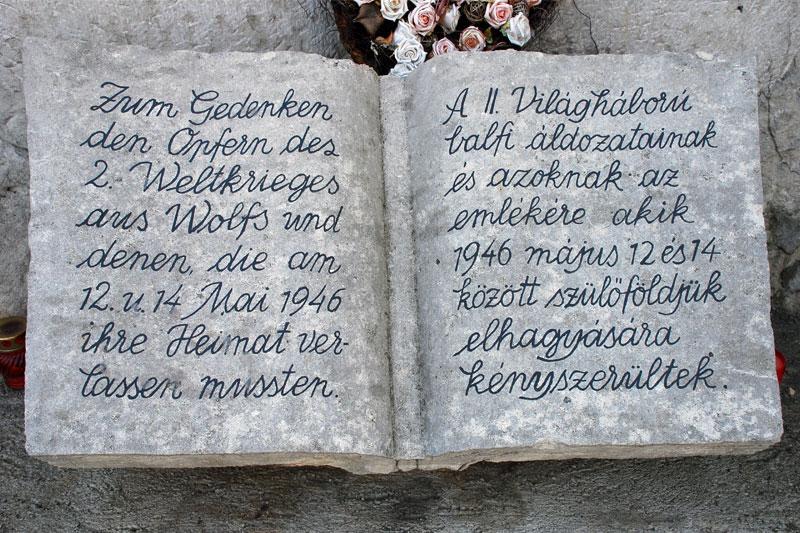 Zum Gedenken
den Opfern des
2. Weltkrieges
aus Wolfs und
denen, die am
12. u. 14 Mai 1946
ihre Heimat ver-
lassen mussten.
A II. Világháború
balfi áldozatainak
és azoknak az
emlékére akik
1946 május 12 és 14
között szülőföldjük
elhagyására
kényszerültek.